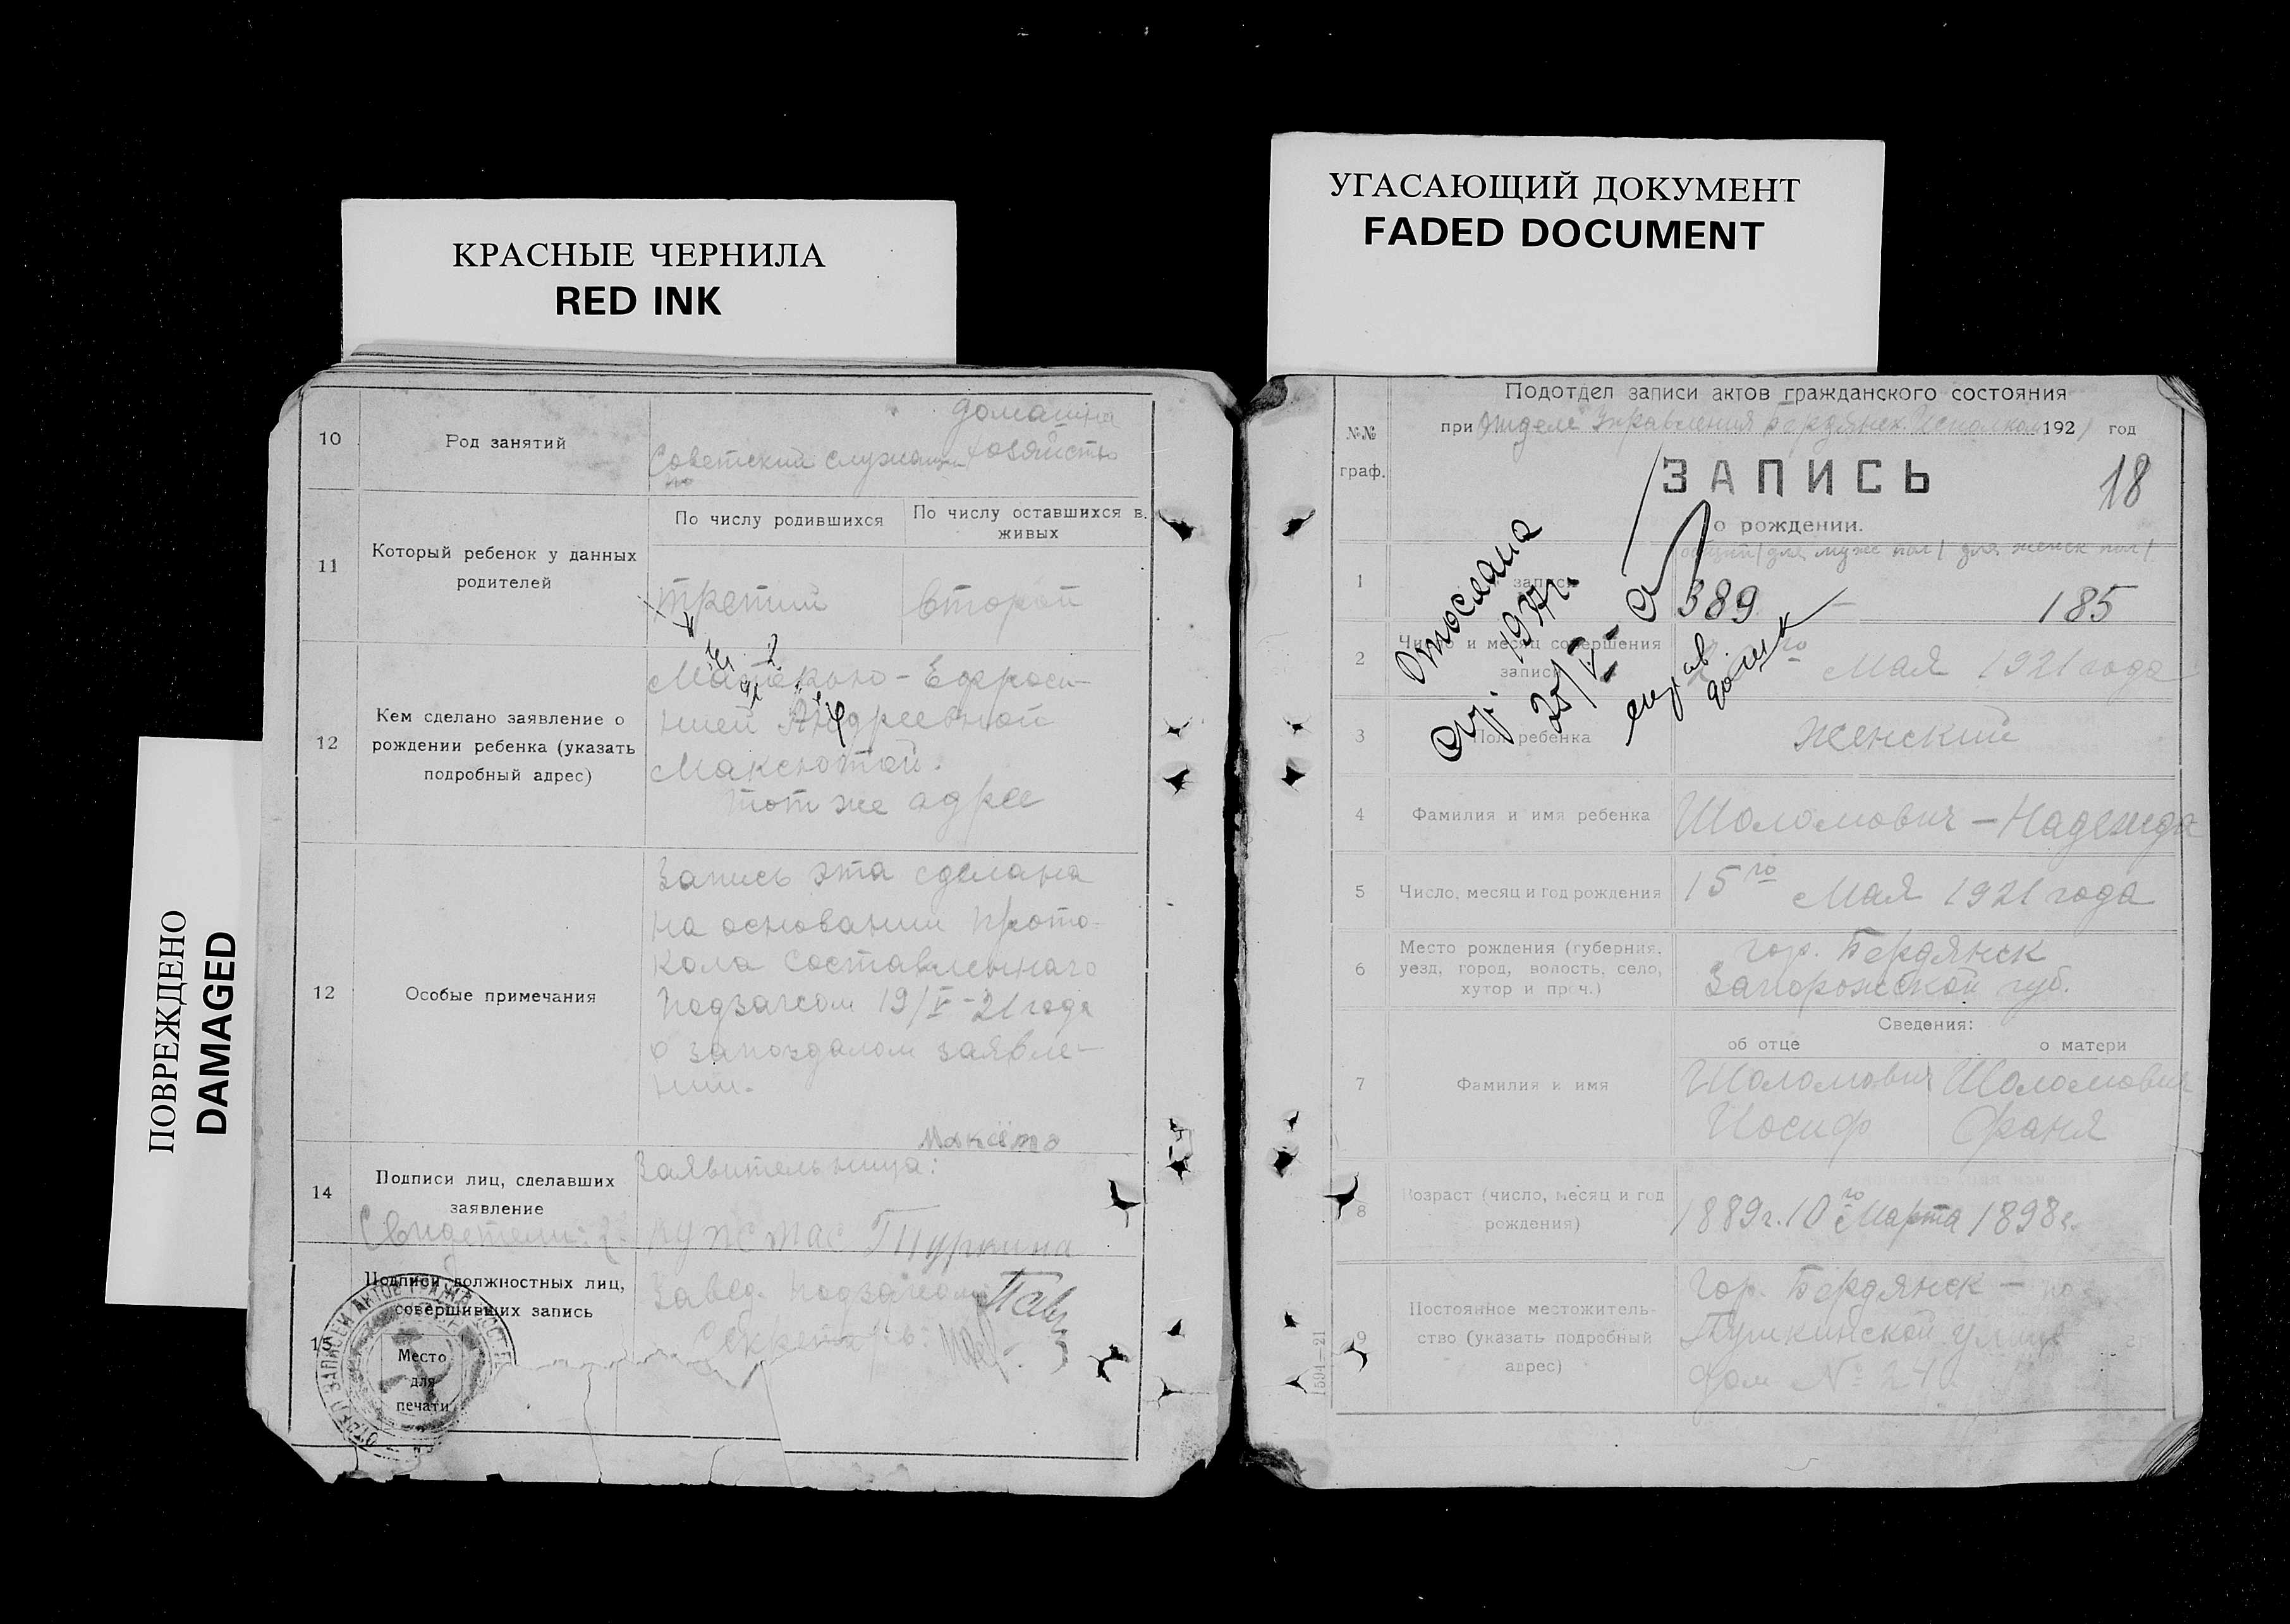 КРАСНЫЕ ЧЕРНИЛА
RED INK
УГАСАЮЩИЙ ДОКУМЕНТ
FADED DOCUMENT
ПОВРЕЖДЕНО
DAMAGED
10
Род занятий
домашнее
Советский служащий хозяйство
11
Который ребенок у данных
родителей
По числу родившихся
По числу оставшихся в
живых
третий
второй
12
Кем сделано заявление о
рождении ребенка (указать
подробный адрес)
Матерью - Ефроси-
нией Андреевной
Максютой.
тот же адрес
12
Особые примечания
Запись эта сделана
на основании прото-
кола составленнаго
подзагсом 19/V-21 года
о запоздалом заявле-
нии.
14
Подписи лиц, сделавших
заявление
Заявительница:
Свидетели:
Туркина
15
Подписи должностных лиц,
совершивших запись
Завед. подзагсом
Секретарь
Место
для
печати
Подотдел записи актов гражданского состояния
при Отделе Управления Бердянск. Исполкома 1921 год
№№
граф.
ЗАПИСЬ
18
о рождении.
общий / для муж пол / для женск пол /
1
записи
389 — 185
Отослана
1937 г.
25/V
2
Число и месяц совершения
записи
Мая 1921 года
3
Пол ребенка
женский
4
Фамилия и имя ребенка
Шоломович - Надежда
5
Число, месяц и год рождения
15го Мая 1921 года
6
Место рождения (губерния,
уезд, город, волость, село,
хутор и проч.)
гор. Бердянск
Запорожской губ.
Сведения:
об отце
о матери
7
Фамилия и имя
Шоломович
Иосиф
Шоломович
Фаня
8
Возраст (число, месяц и год
рождения)
1889 г. 10го Марта 1898 г.
9
Постоянное местожитель-
ство (указать подробный
адрес)
гор. Бердянск - по
Пушкинской улице
дом № 24
1594—21